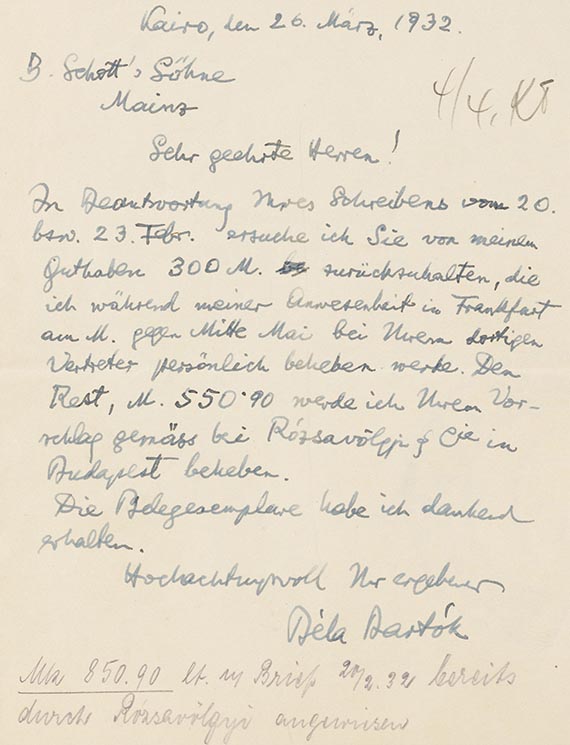 Kairo, den 26. März, 1932.
B. Schott's Söhne
Mainz
4/4. Kß
Sehr geehrte Herren!
In Beantwortung Ihres Schreibens vom 20.
bzw. 23. Febr. ersuche ich Sie von meinem
Guthaben 300 M. zurückzuhalten, die
ich während meiner Anwesenheit in Frankfurt
am M. gegen Mitte Mai bei Ihrem dortigen
Vertreter persönlich beheben werde. Den
Rest, M. 550·90 werde ich Ihrem Vor-
schlag gemäss bei Rózsavölgyi & Cie in
Budapest beheben.
Die Belegexemplare habe ich dankend
erhalten.
Hochachtungsvoll Ihr ergebener
Béla Bartók
Mk 850.90 lt. Brief 20/2.32 bereits
durch Rózsavölgyi angewiesen